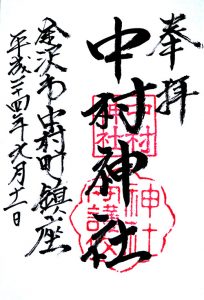 奉拝
中村神社
金沢市中村町鎮座
平成二十四年九月十二日